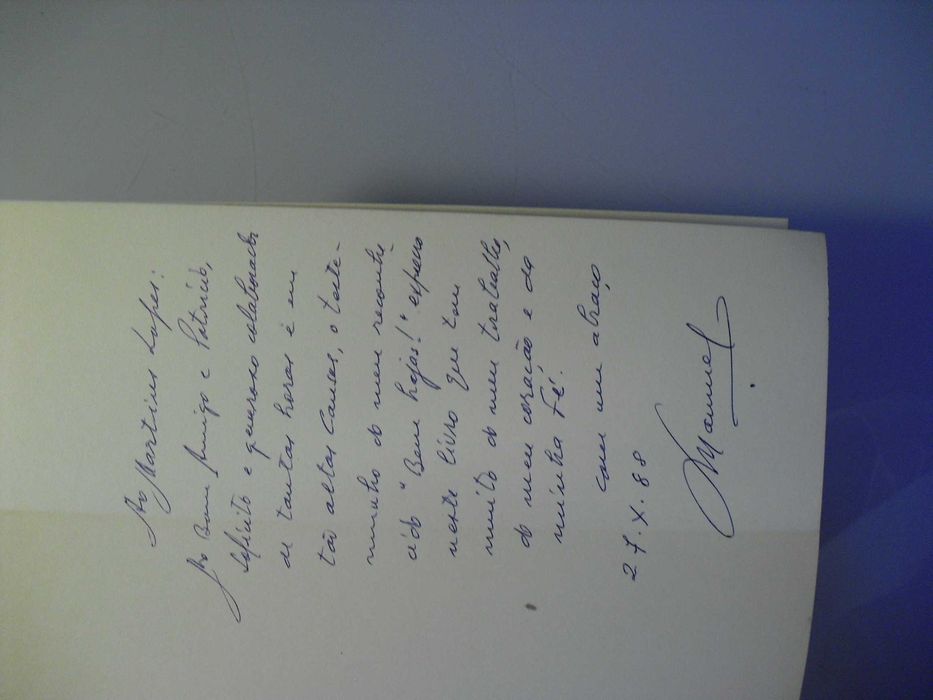 Ao Martins Lopes:
Ao Bom Amigo e Patrício,
solícito e generoso colaborador
de tantas horas e em
tão altas Causas, o teste-
munho do meu reconhe-
cido "Bem hajas!" expresso
neste livro que tem
muito do meu trabalho,
do meu coração e da
minha Fé.
com um abraço
27.X.88
Manuel